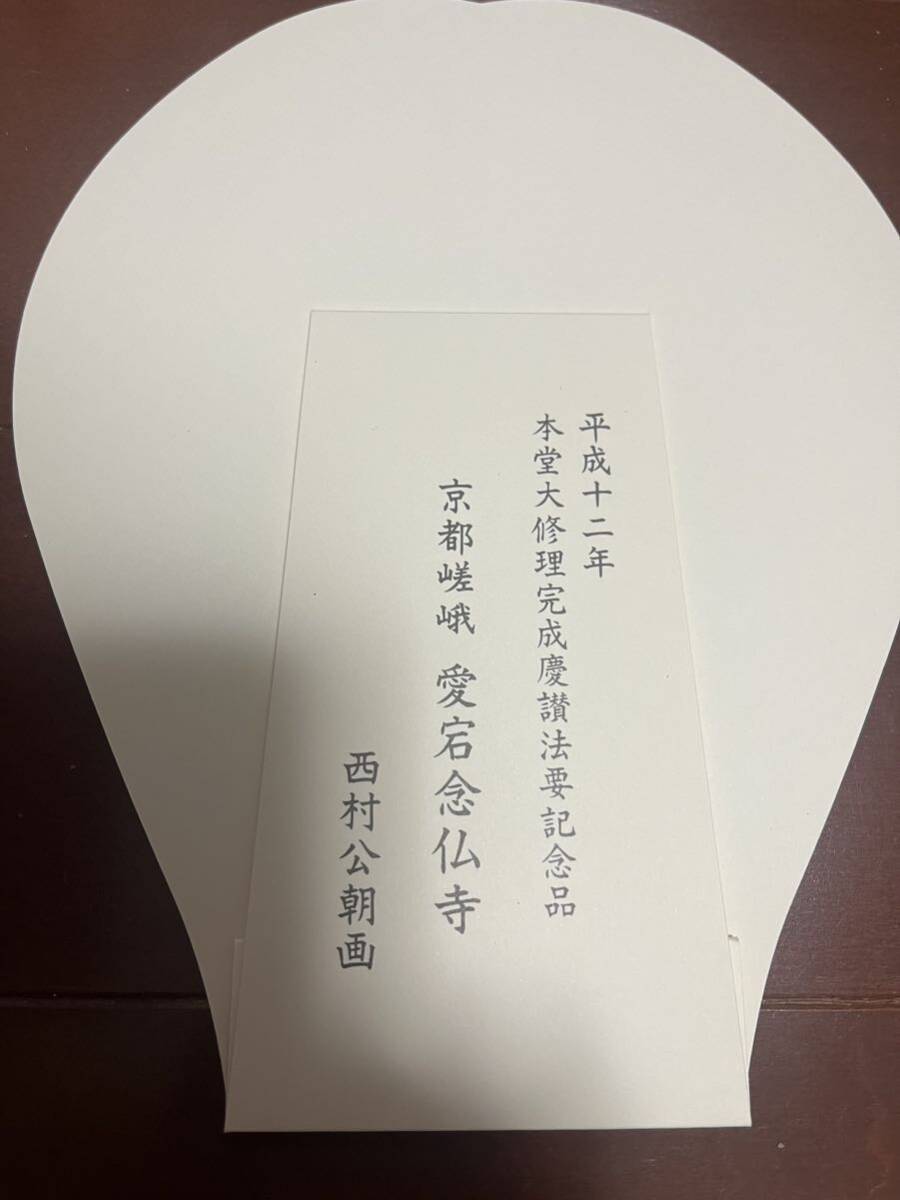 平成十二年
本堂大修理完成慶讃法要記念品
京都嵯峨 愛宕念仏寺
西村公朝画